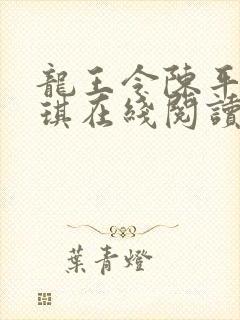 龍王令陳平
琪在綫閱讀
葉青燈